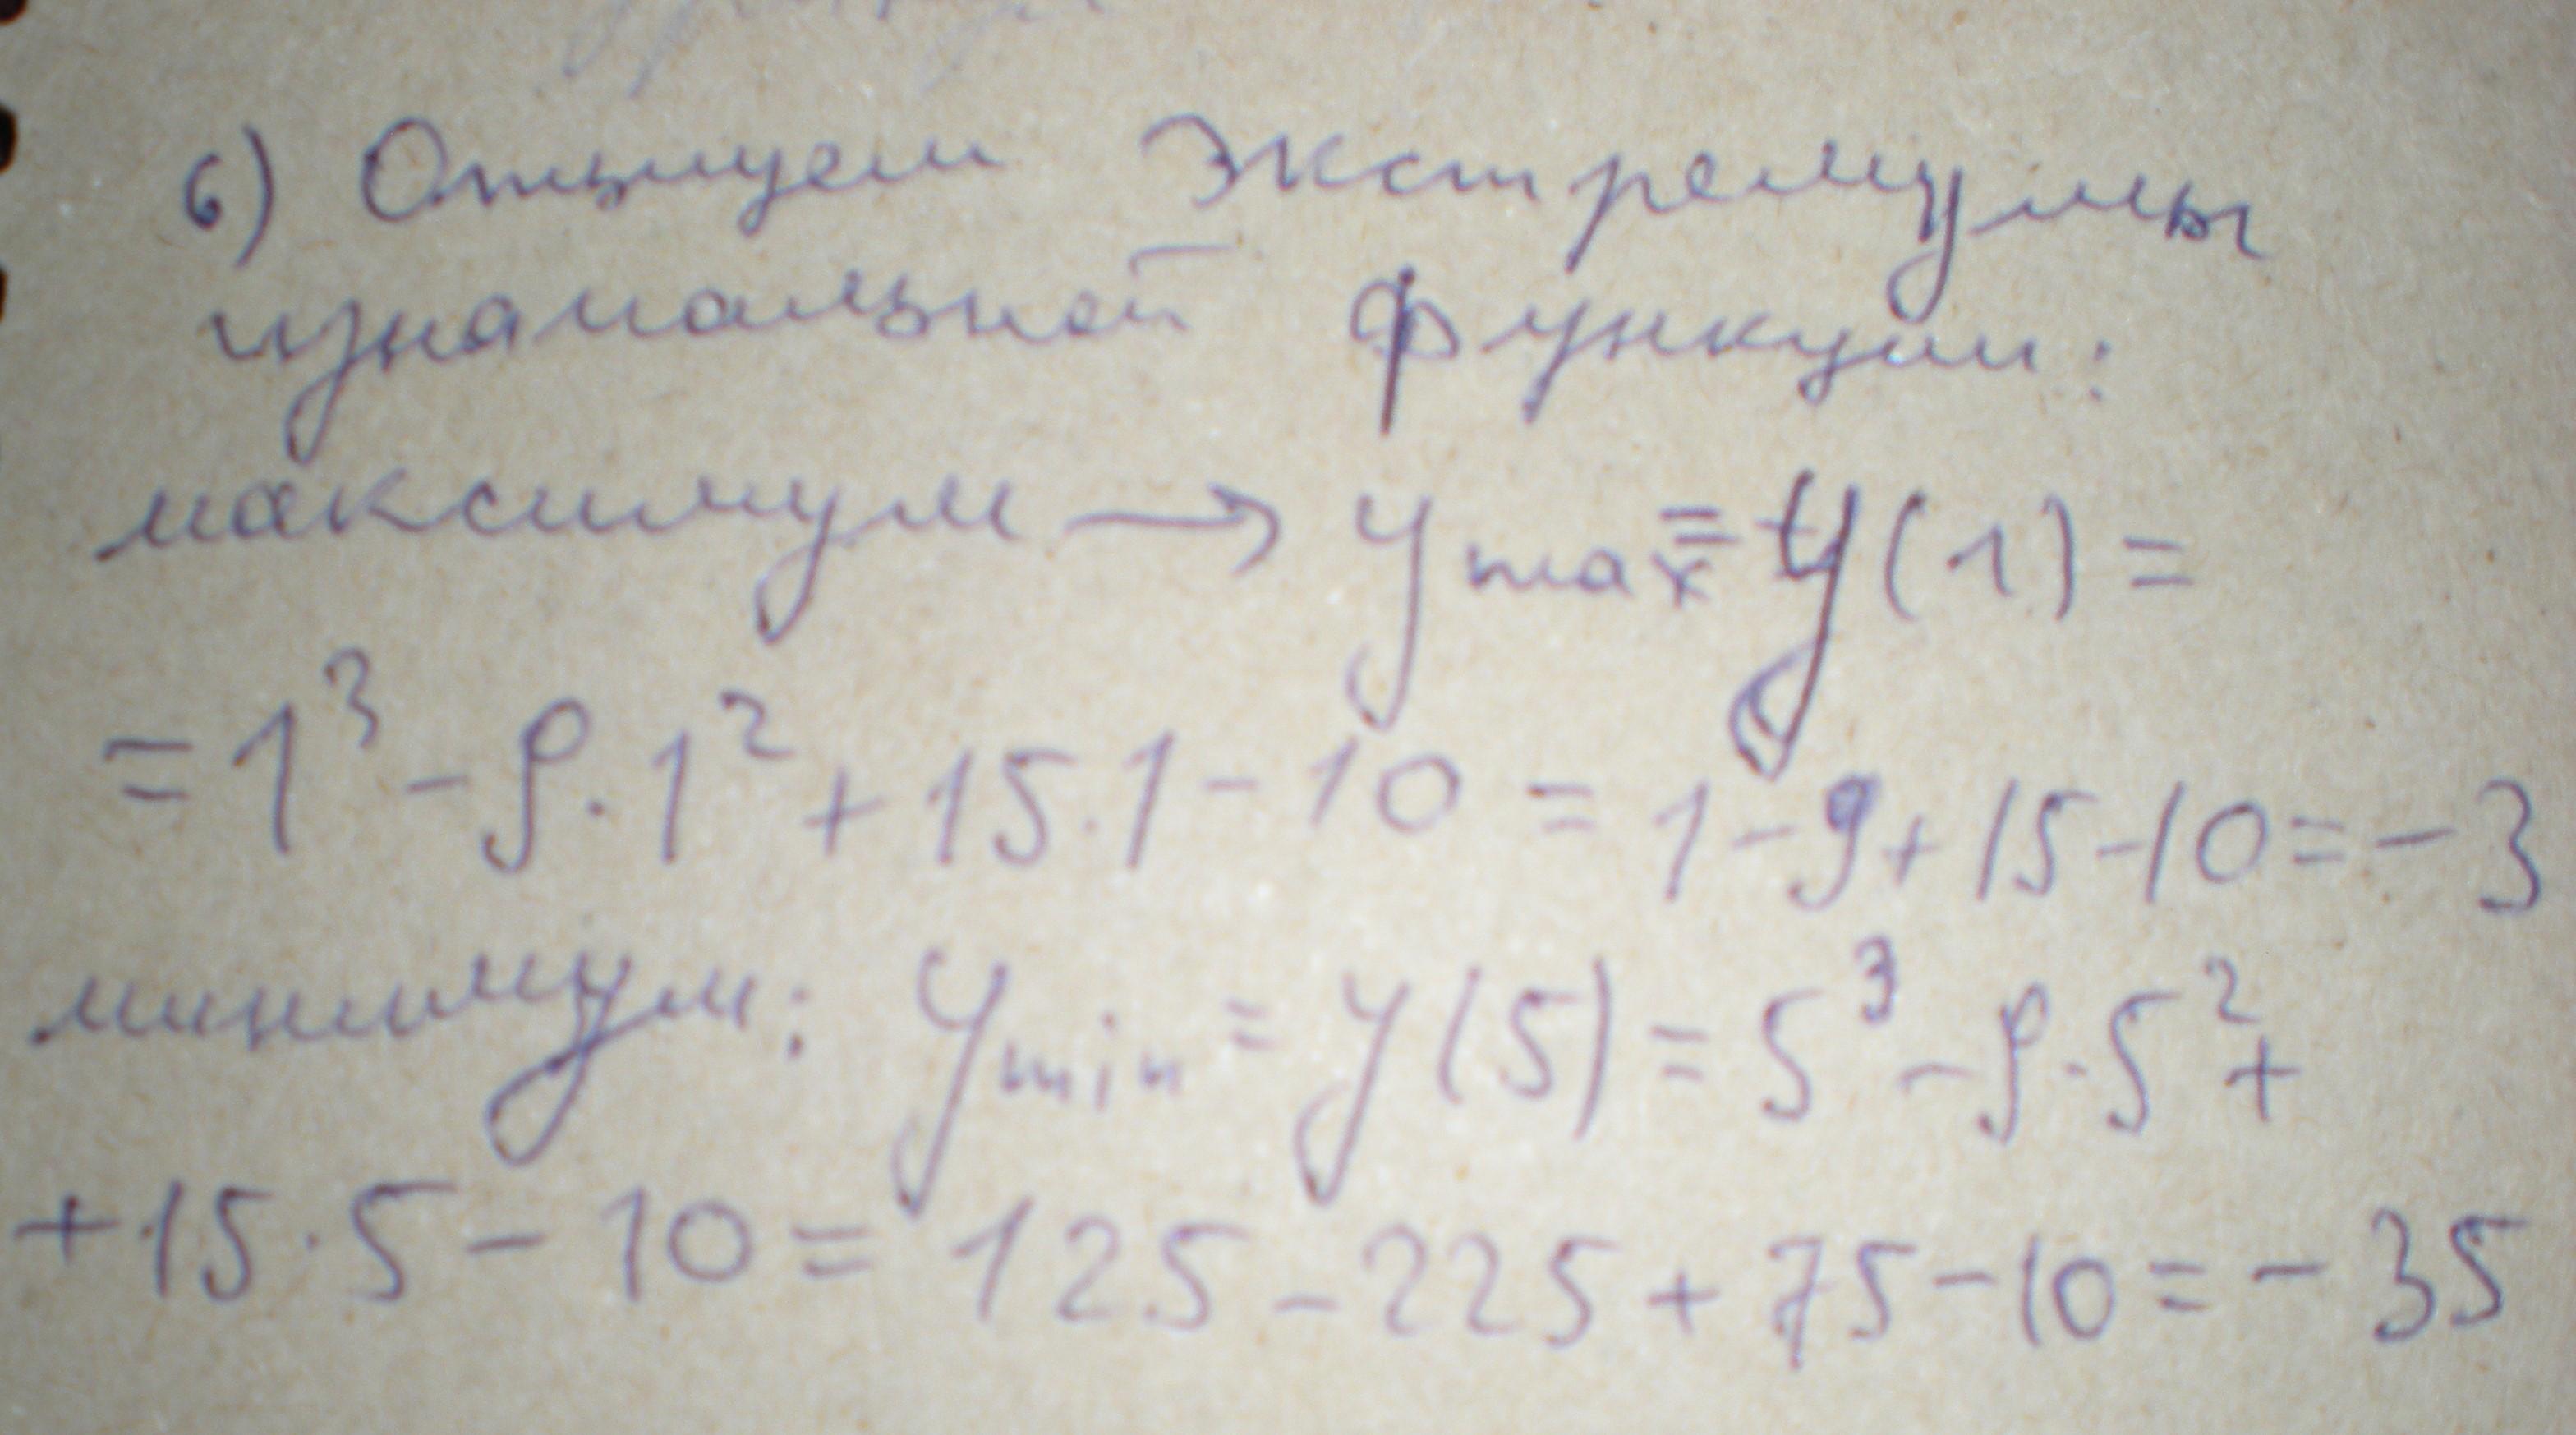 6) Отыщем экстремумы
изначальной функции:
максимум → y max = y(1) =
= 1³ - 9·1² + 15·1 - 10 = 1 - 9 + 15 - 10 = - 3
минимум: y min = y(5) = 5³ - 9·5² +
+ 15·5 - 10 = 125 - 225 + 75 - 10 = - 35